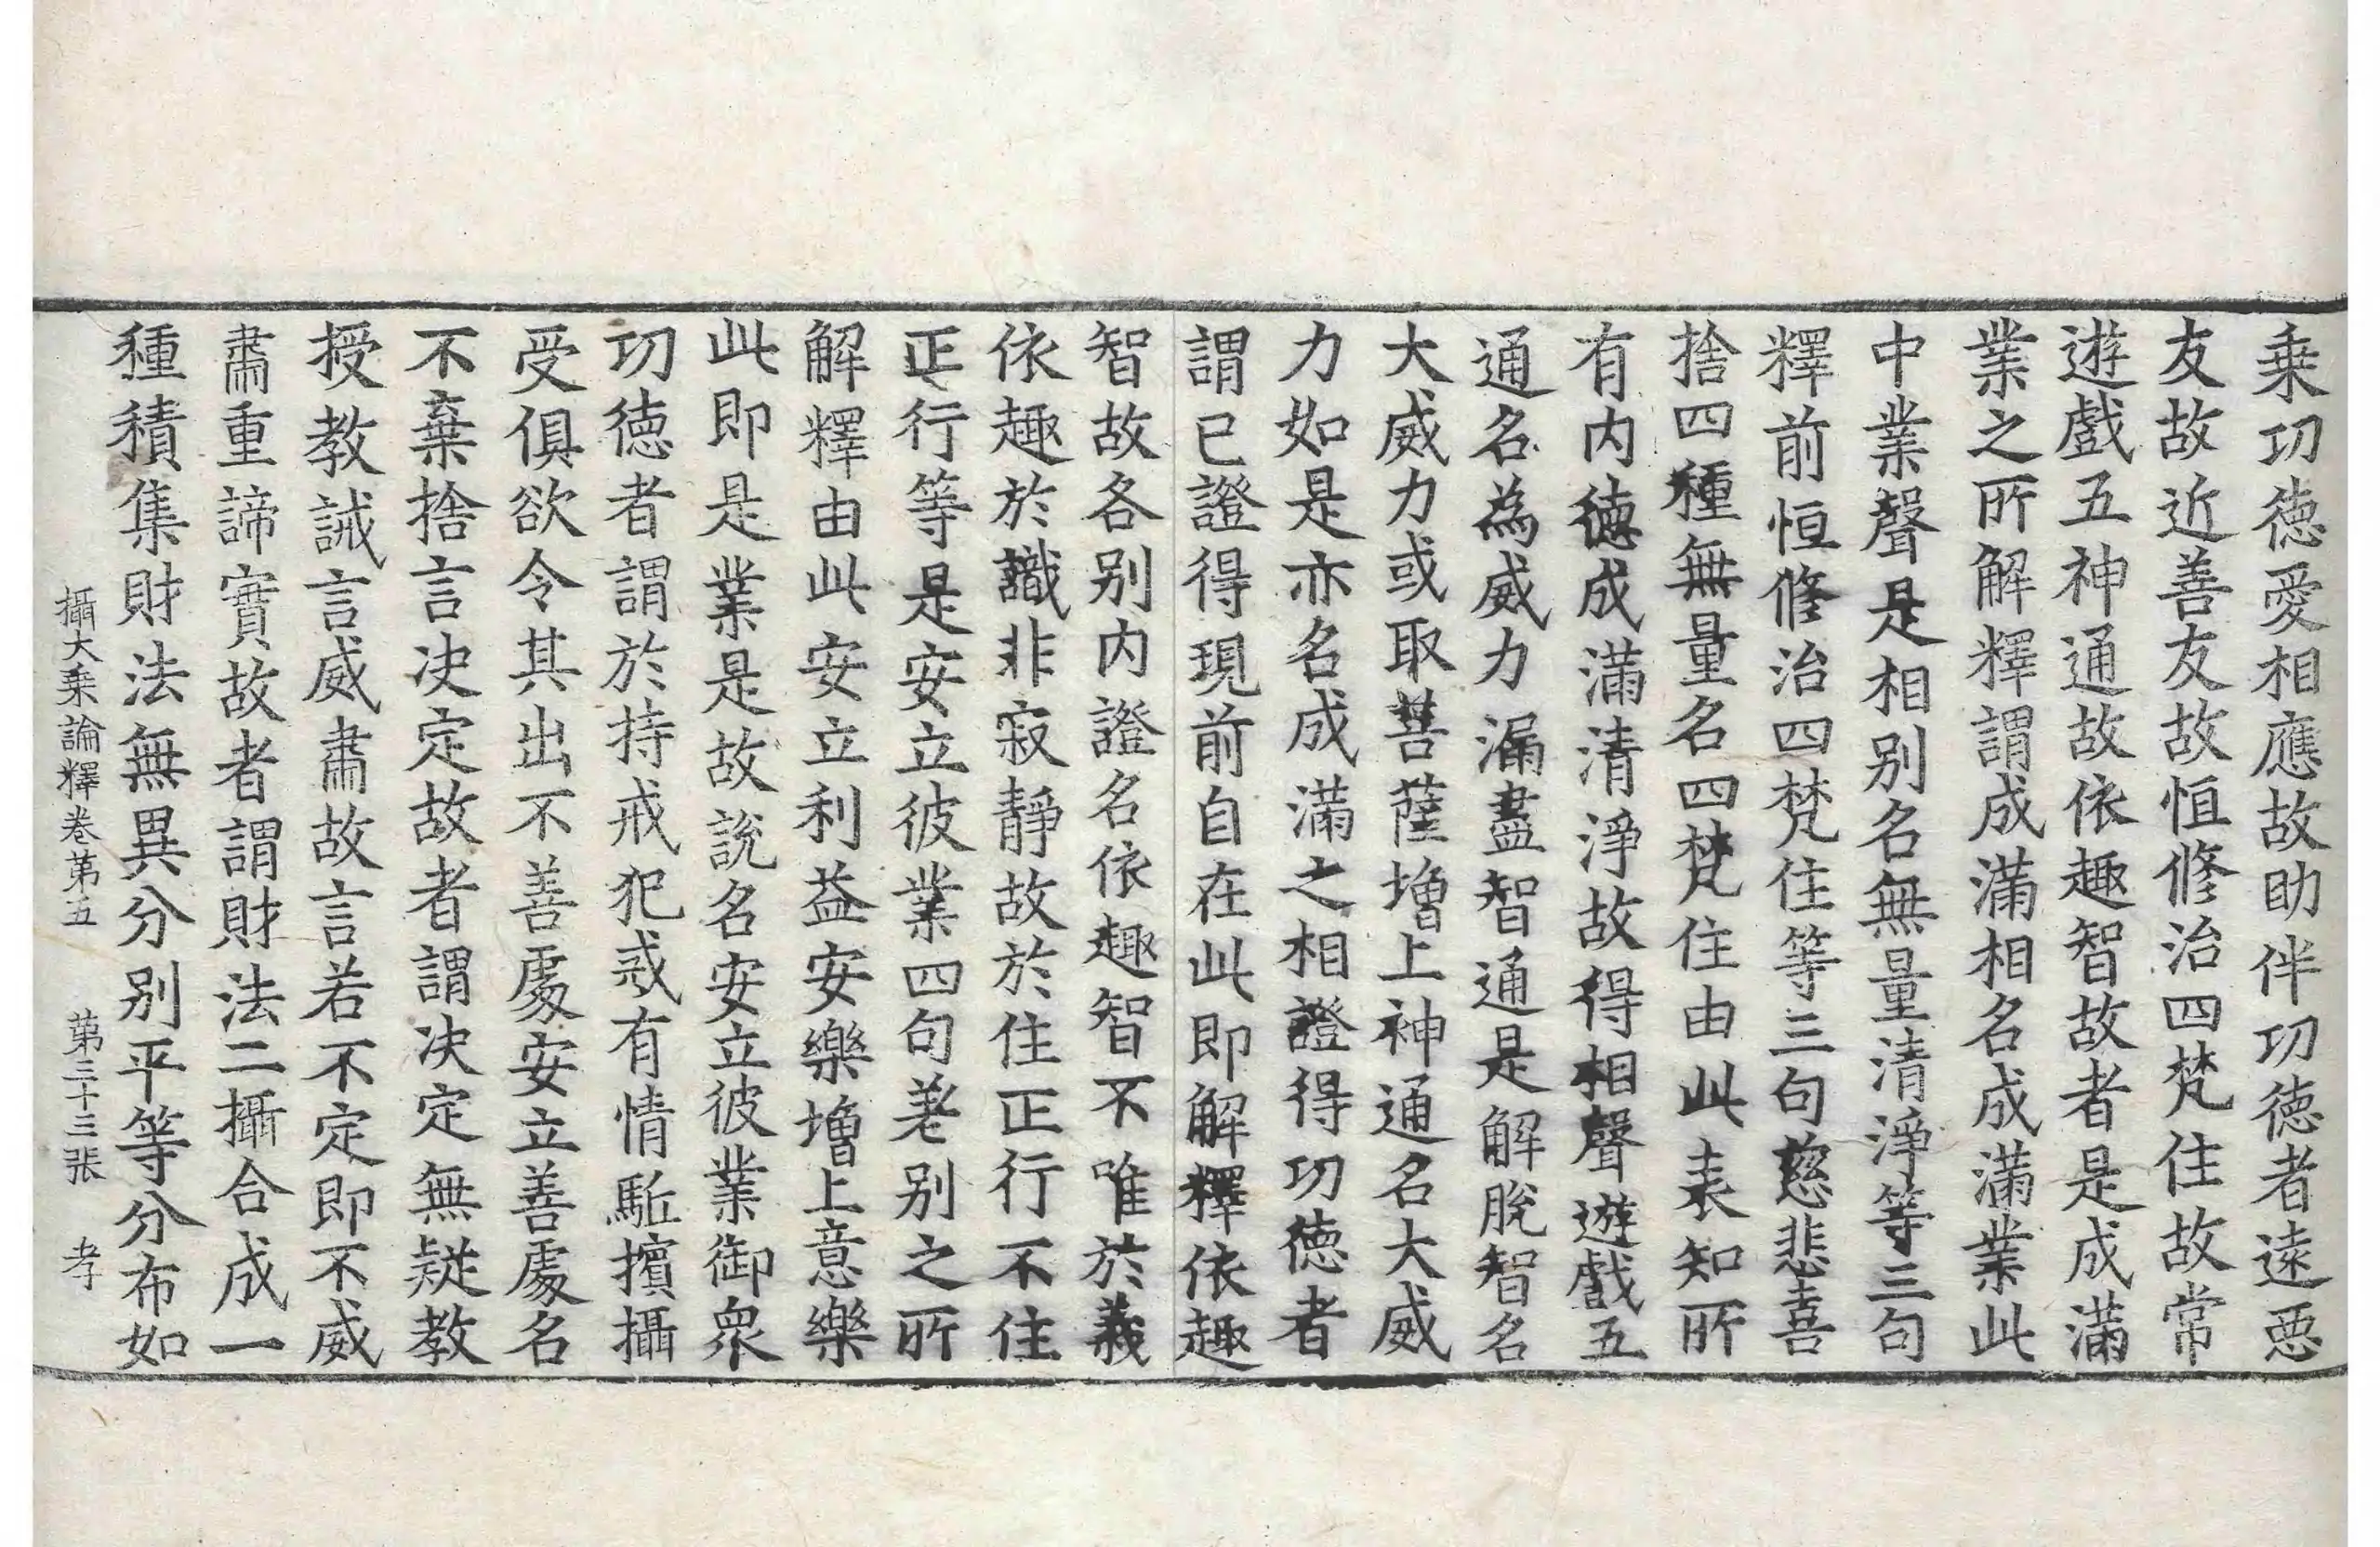 乗功徳愛相應故助伴功徳者遠悪
友故近善友故恒修治四梵住故常
遊戯五神通故依趣智故者是成滿
業之所解釋謂成滿相名成滿業此
中業聲是相別名無量清淨等三句
釋前恒修治四梵住等三句慈悲喜
捨四種無量名四梵住由此表知所
有内徳成滿清淨故得相聲遊戯五
通名為威力漏盡智通是解脫智名
大威力或取菩薩増上神通名大威
力如是亦名成滿之相證得功徳者
謂已證得現前自在此即解釋依趣
智故各別内證名依趣智不唯於義
依趣於識非寂靜故於住正行不住
正行等是安立彼業四句差別之所
解釋由此安立利益安樂増上意樂
此即是業是故説名安立彼業御衆
功徳者謂於持戒犯戒有情駈擯攝
受俱欲令其出不善處安立善處名
不棄捨言决定故者謂决定無疑教
授教誡言威肅故言若不定即不威
肅重諦實故者謂財法二攝合成一
種積集財法無異分別平等分布如
攝大乗論釋卷第五　第三十三張　孝